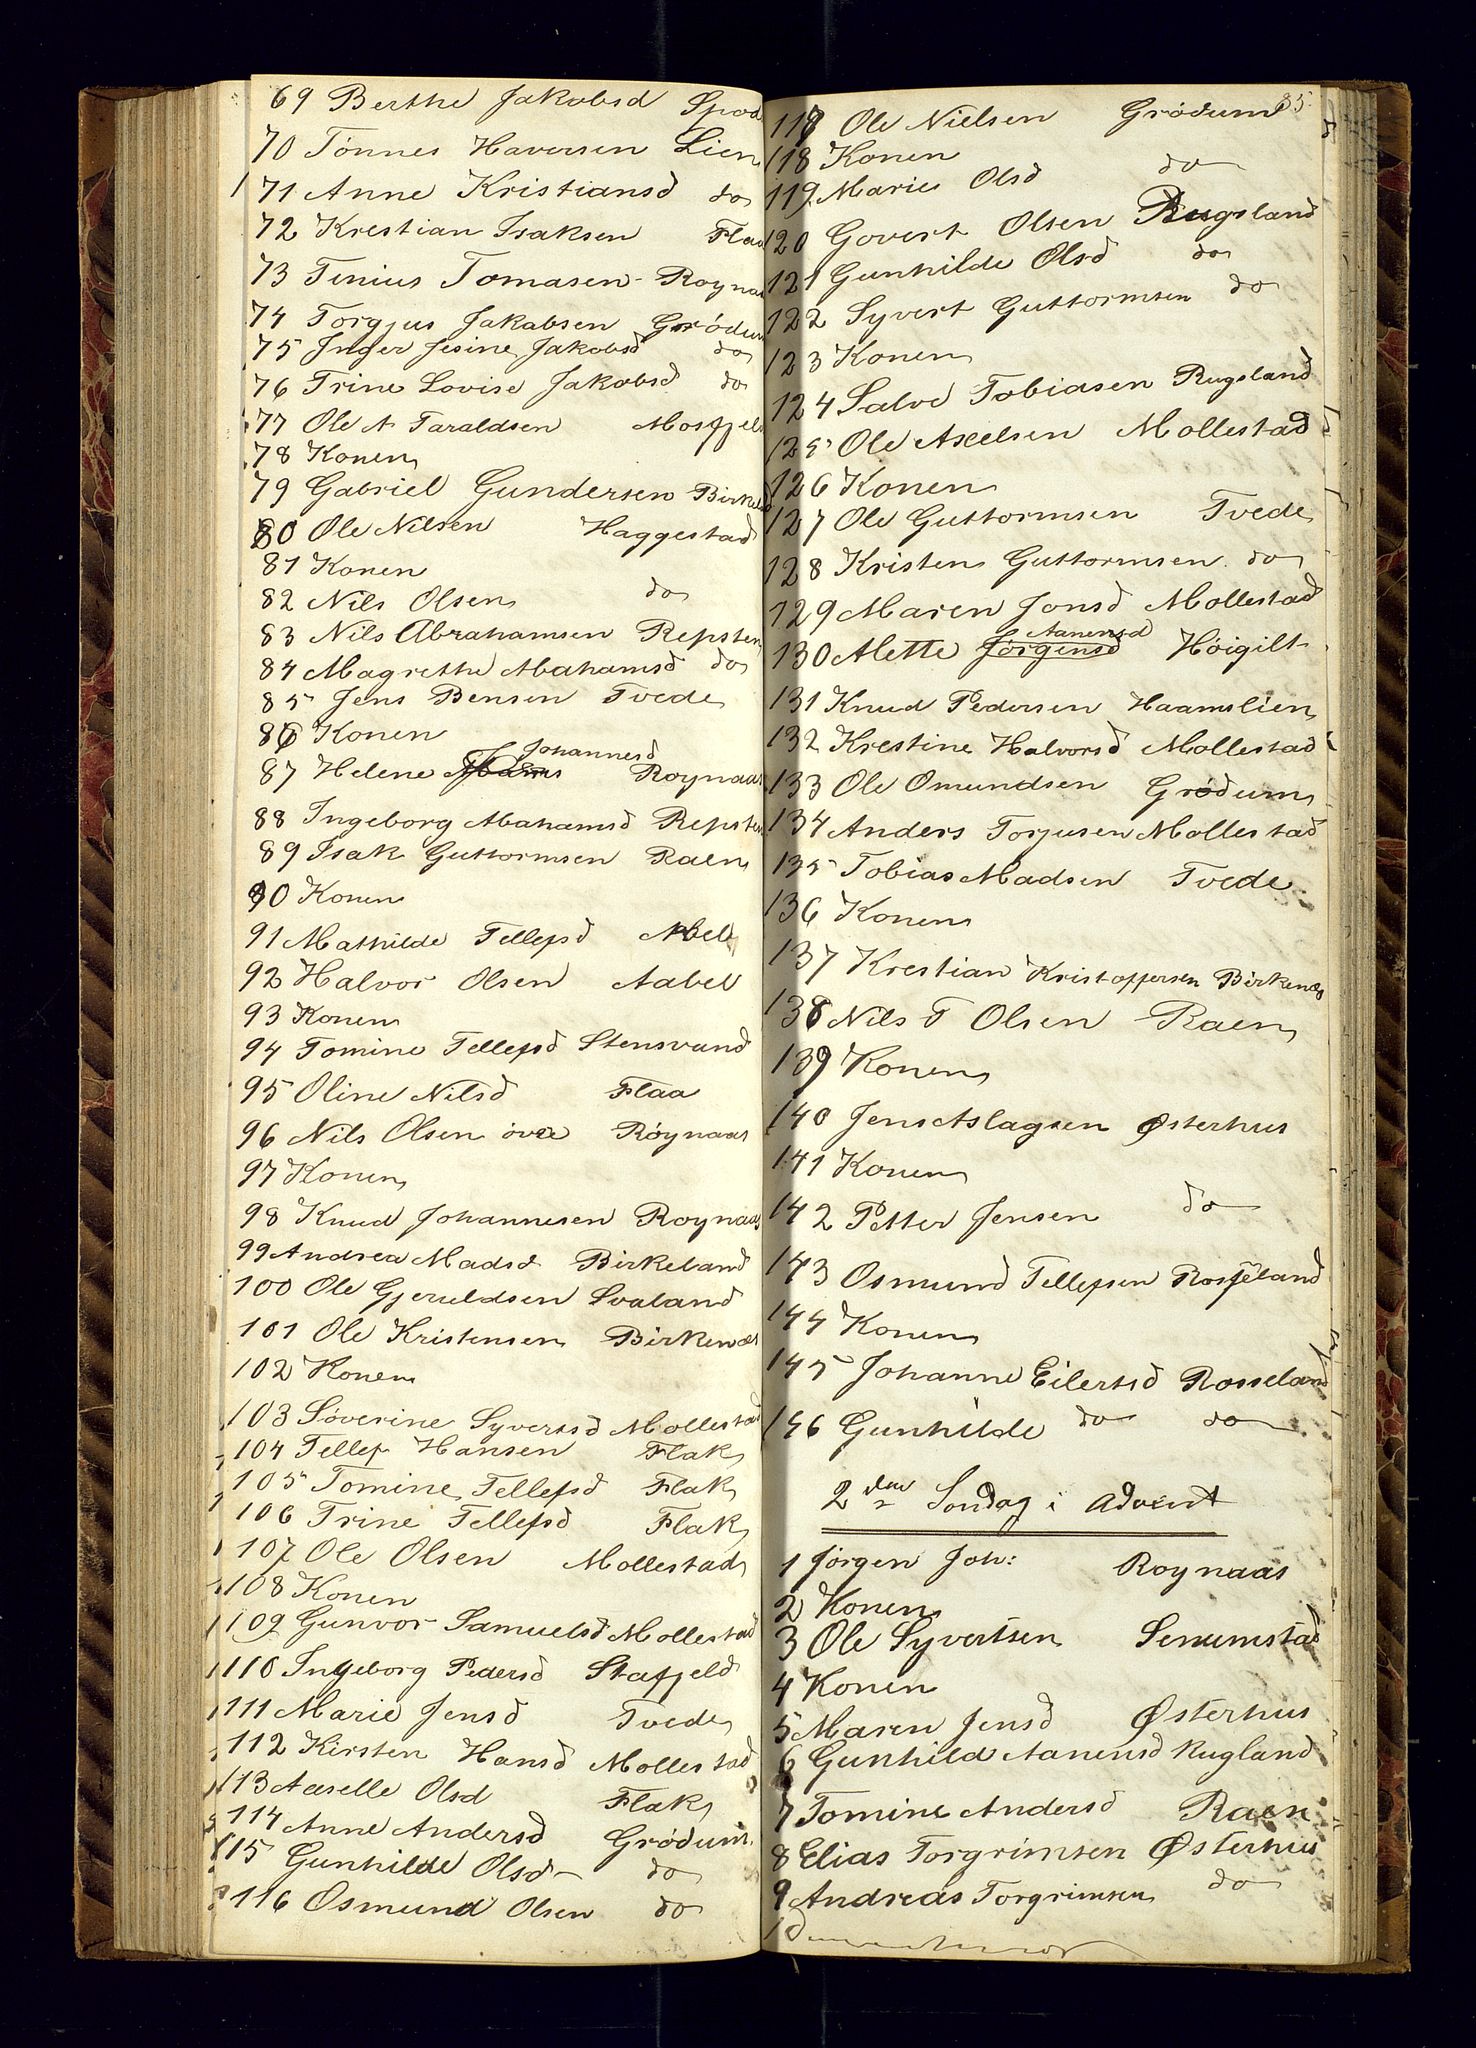 69 Berthe Jakobsd Spod
70 Tönnes Haversen Lien
71 Anne Kristiansd do
72 Krestian Isaksen Flaa
73 Tenius Tomasen Roynaa
74 Torgjus Jakabsen Grödum
75 Inger Jesine Jakobsd do
76 Trine Lovise Jakobsd do
77 Ole N Taraldsen Mosfjeld
78 Konen
79 Gabriel Gundersen Birkeland
80 Ole Nilsen Haggestad
81 Konen
82 Nils Olsen do
83 Nils Abrahamsen Repsten
84 Magrethe Abahamsd do
85 Jens Bensen Tvede
86 Konen
87 Helene Johannesd Roynaas
88 Ingeborg Abahamsd Repsten
89 Isak Guttormsen Raen
90 Konen
91 Mathilde Tellefsd Abel
92 Halvor Olsen Aabel
93 Konen
94 Tomine Tellefsd Stensvand
95 Oline Nilsd Flaa
96 Nils Olsen övre Röynaas
97 Konen
98 Knud Johannesen Roynaas
99 Andrea Madsd Birkeland
100 Ole Gjeruldsen Svaland
101 Ole Kristensen Birkenæs
102 Konen
103 Söverine Syvertsd Mollestad
104 Tellef Hansen Flak
105 Tomine Tellefsd Flak
106 Trine Tellefsd Flak
107 Ole Olsen Mollestad
108 Konen
109 Gunvor Samuelsd Mollestad
110 Ingeborg Pedersd Stafjeld
111 Marie Jensd Tvede
112 Kirsten Hansd Mollestad
113 Aaselle Olsd Flak
114 Anne Andersd Grödum
115 Gunhilde Olsd do
116 Osmund Olsen do
85.
117 Ole Nielsen Grödum
118 Konen
119 Marie Olsd do
120 Govert Olsen Rugsland
121 Gunhilde Olsd do
122 Syvert Guttormsen do
123 Konen
124 Salve Tobiasen Rugsland
125 Ole Axelsen Mollestad
126 Konen
127 Ole Guttormsen Tvede
128 Kristen Guttormsen do
129 Maren Jonsd Mollestad
130 Alette Jörgensd Aanensd Höigilt
131 Knud Pedersen Haamslien
132 Krestine Halvorsd Mollestad
133 Ole Omundsen Grödum
134 Anders Torjusen Mollestad
135 Tobias Madsen Tvede
136 Konen
137 Krestian Kristoffersen Birkenæs
138 Nils T Olsen Raen
139 Konen
140 Jens Aslagsen Østerhus
141 Konen
142 Petter Jensen do
143 Osmund Tellefsen Rosseland
144 Konen
145 Johanne Eilertsd Rosseland
146 Gunhilde do do
2den Söndag i Advent
1 Jörgen Joh: Roynaas
2 Konen
3 Ole Syvertsen Senumstad
4 Konen
5 Maren Jensd Østerhus
6 Gunhild Aanensd Rugland
7 Tomine Andersd Raen
8 Elias Torgrimsen Østerhus
9 Andreas Torgrimsen do
10